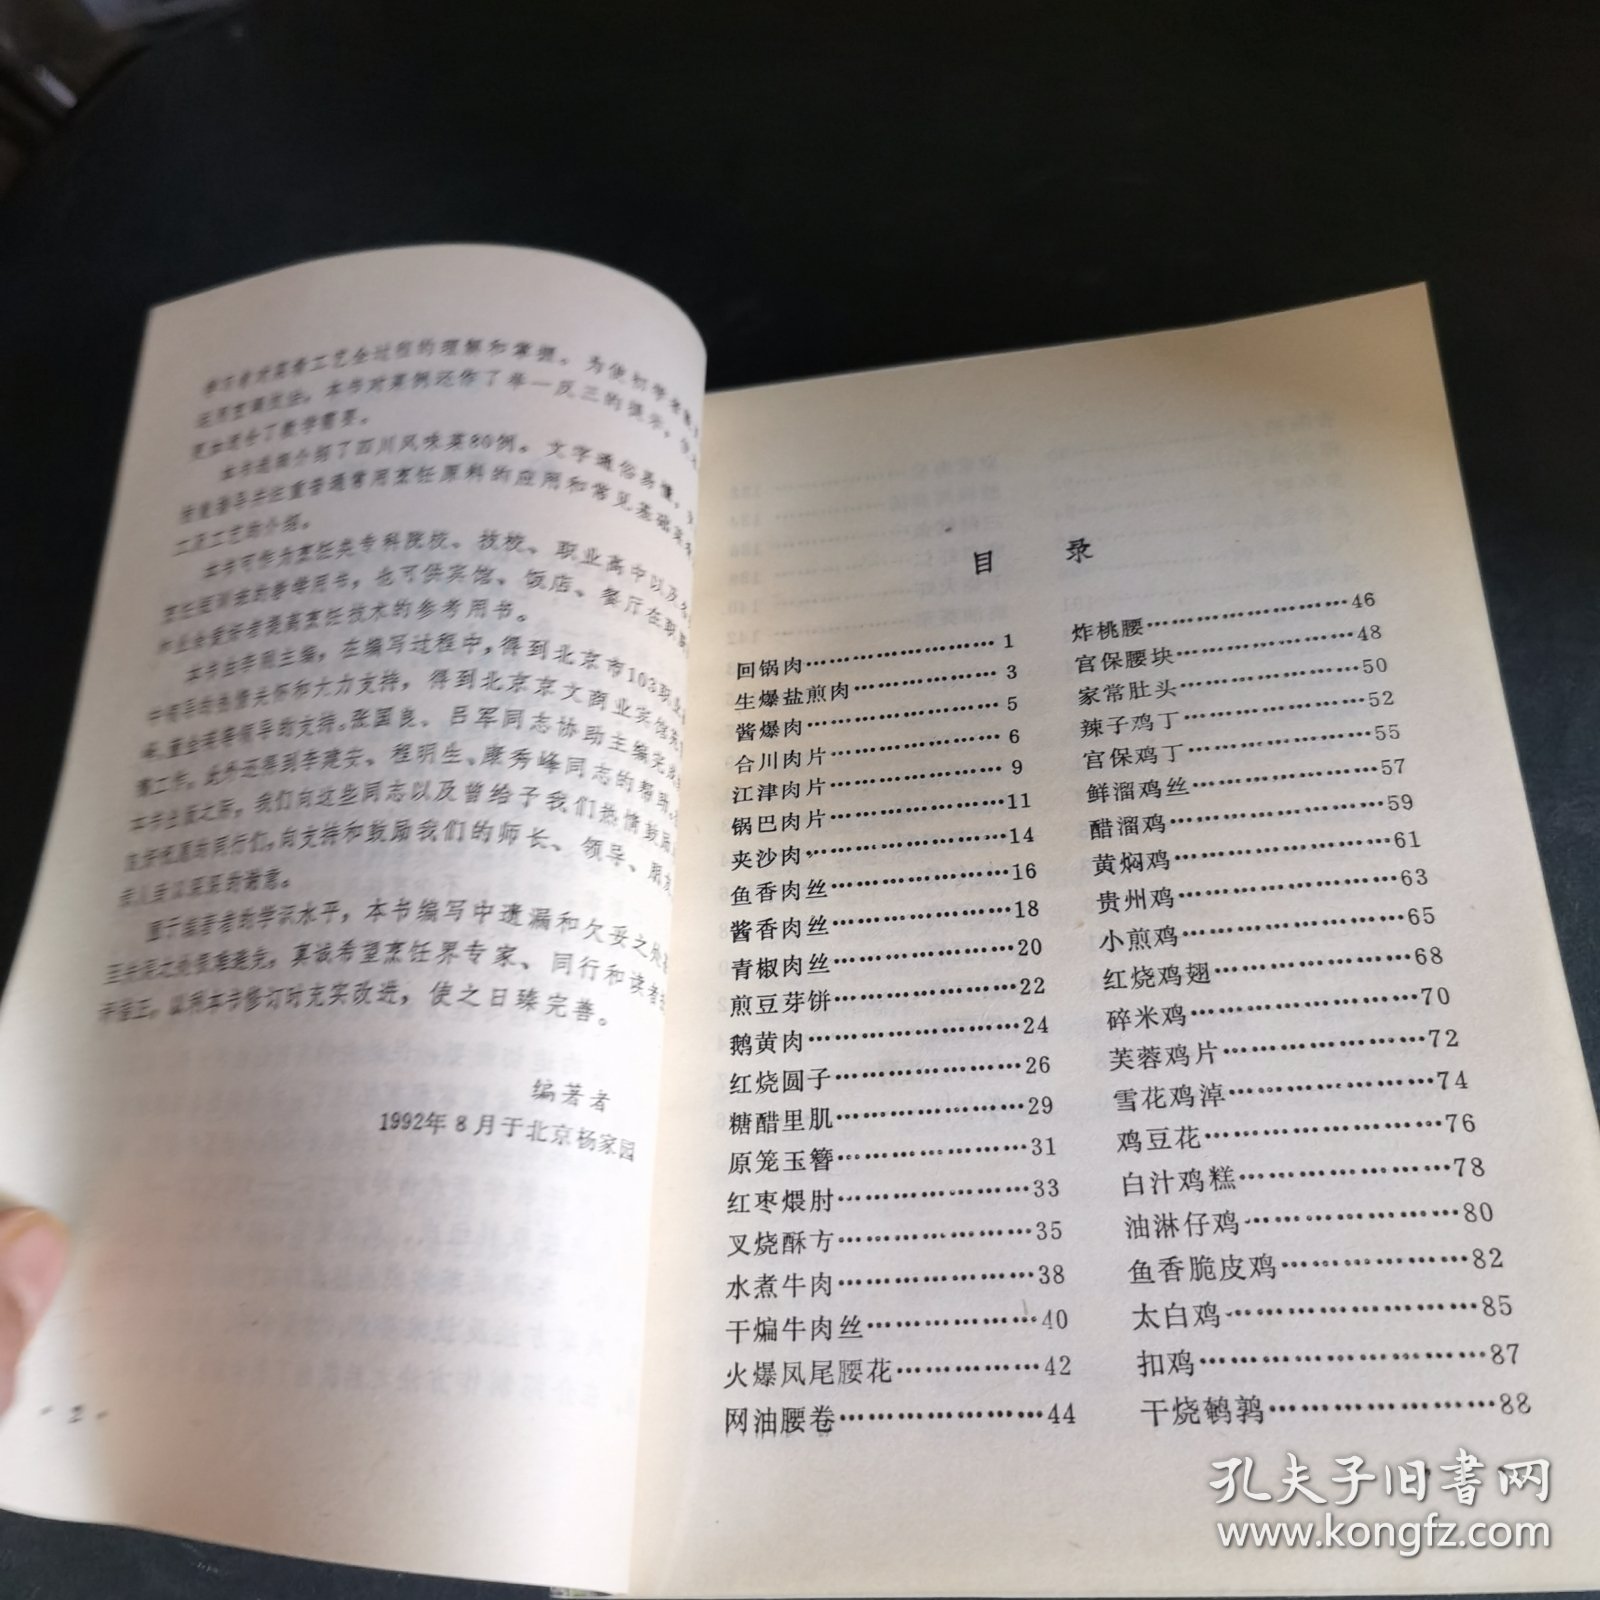 更加适合了教学需要。
本书选编介绍了四川风味菜80例。文字通俗易懂,
工及工艺的介绍。
本书可作为烹饪类专科院校、技校、职业高中以及
烹饪短训班的教学用书,也可供宾馆、饭店、餐厅在职
作业余爱好者提高烹饪技术的参考用书。
本书由李刚主编,在编写过程中,得到北京市103职业
中领导的热情关怀和大力支持,得到北京京文商业宾馆
等领导的支持。张国良、吕军同志协助主编
工作。此外还得到李建安、程明生、康秀峰同志的帮助。
本书出版之际,我们向这些同志以及曾给予我们热情鼓励
的同行们,向支持和鼓励我们的师长、领导、朋友
深深的谢意。
由于编著者的学识水平,本书编写中遗漏和欠妥之处
至失误之处很难避免,真诚希望烹饪界专家、同行和读者
指正。以利本书修订时充实改进,使之日臻完善。
编著者
1992年8月于北京杨家园
· 2 ·
目 录
回锅肉…………………………1
生爆盐煎肉……………………3
酱爆肉…………………………5
合川肉片………………………6
江津肉片………………………9
锅巴肉片………………………11
夹沙肉…………………………14
鱼香肉丝………………………16
酱香肉丝………………………18
青椒肉丝………………………20
煎豆芽饼………………………22
鹅黄肉…………………………24
红烧圆子………………………26
糖醋里肌………………………29
原笼玉簪………………………31
红枣煨肘………………………33
叉烧酥方………………………35
水煮牛肉………………………38
干煸牛肉丝……………………40
火爆凤尾腰花…………………42
网油腰卷………………………44
炸桃腰…………………………46
宫保腰块………………………48
家常肚头………………………50
辣子鸡丁………………………52
宫保鸡丁………………………55
鲜溜鸡丝………………………57
醋溜鸡…………………………59
黄焖鸡…………………………61
贵州鸡…………………………63
小煎鸡…………………………65
红烧鸡翅………………………68
碎米鸡…………………………70
芙蓉鸡片………………………72
雪花鸡淖………………………74
鸡豆花…………………………76
白汁鸡糕………………………78
油淋仔鸡………………………80
鱼香脆皮鸡……………………82
太白鸡…………………………85
扣鸡……………………………87
干烧鹌鹑………………………88
孔夫子旧书网
www.kongfz.com